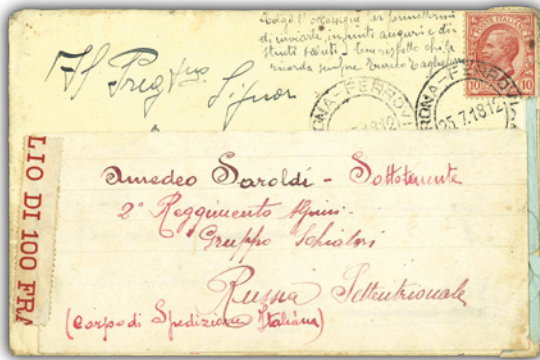 di inviarle, infiniti auguri e di-
stinti saluti - Con rispetto chi la
ricorda sempre Enrico
POSTE ITALIANE
10 10
ROMA-FERROV
ROMA-FERROV
25.7.18.12
Al Preg.mo
Signor
LIO DI 100 FRA
Amedeo Saroldi - Sottotenente
2º Reggimento Alpini.
Gruppo Sciatori
Russia Settentrionale
(Corpo di Spedizione Italiana)